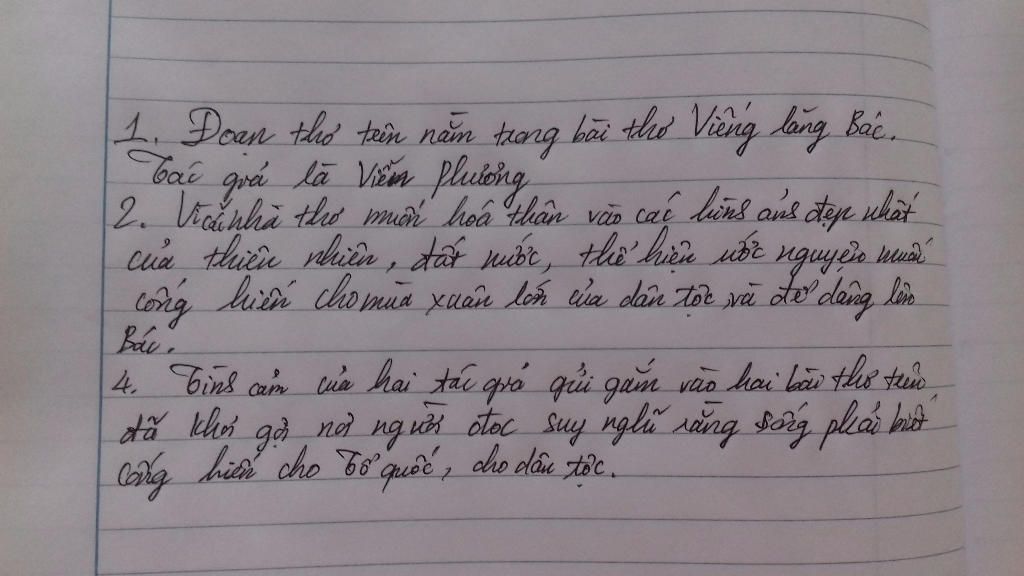 1. Đoạn thơ trên nằm trong bài thơ Viếng lăng Bác.
Tác giả là Viễn Phương
2. Vì cả nhà thơ muốn hoá thân vào các hình ảnh đẹp nhất
của thiên nhiên, đất nước, thể hiện ước nguyện muốn
cống hiến cho mùa xuân lớn của dân tộc, và để dâng lên
Bác.
4. Tình cảm của hai tác giả gửi gắm vào hai bài thơ trên
đã khơi gợi nơi người đọc suy nghĩ rằng sống phải biết
cống hiến cho Tổ quốc, cho dân tộc.